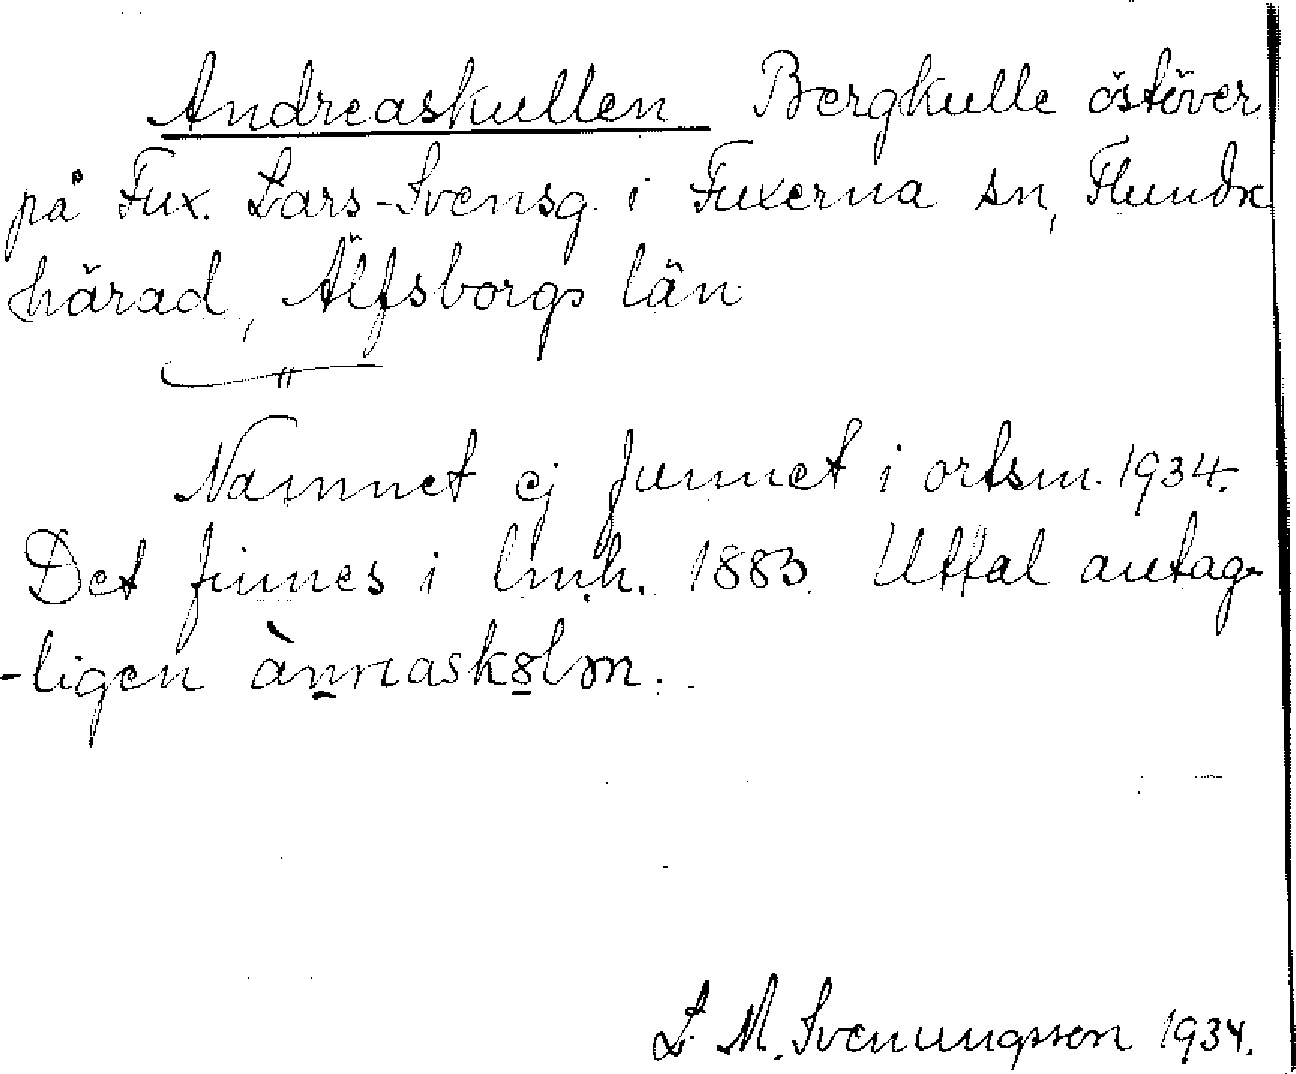 Andreaskullen Bergkulle östöver
på Fux. Lars-Svensg. i Fuxerna sn, Flundre
härad, Älfsborgs län
"
Namnet ej funnet i ortsm. 1934.
Det finnes i lm.k. 1883. Uttal antag-
-ligen
L. M. Svenungsson 1934.